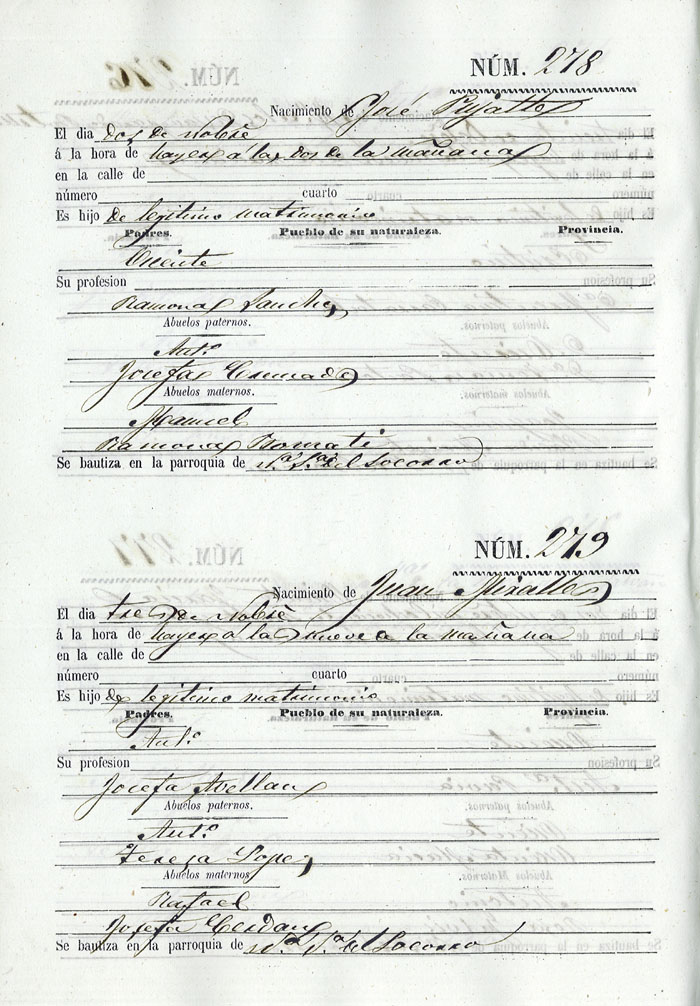 NÚM. 278
Nacimiento de José
El dia dos de Nobre
á la hora de hayer á las dos de la mañana
en la calle de
número cuarto
Es hijo de legitimo matrimonio
Padres. Pueblo de su naturaleza. Provincia.
Vicente
Su profesion
Ramona Sanchez
Abuelos paternos.
Antº
Josefa
Abuelos maternos.
Manuel
Ramona
Se bautiza en la parroquia de Nª Sª del Socorro
NÚM. 279
Nacimiento de Juan Miralles
El dia tres de Nobre
á la hora de hayer á las nueve a la mañana
en la calle de
número cuarto
Es hijo de legitimo matrimonio
Padres. Pueblo de su naturaleza. Provincia.
Antº
Su profesion
Josefa Avellan
Abuelos paternos.
Antº
Teresa Lopez
Abuelos maternos
Rafael
Josefa Cerdan
Se bautiza en la parroquia de Nª Sª del Socorro